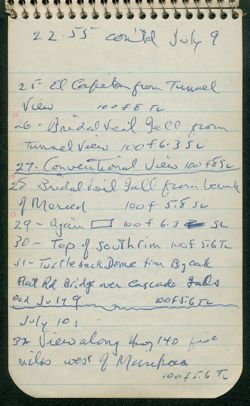 22.55 cont'd July 9
25 - El Capitan from Tunnel
View 100 f 8 TL
26 - Bridal Veil Fall from
Tunnel View 100 f 6.3 SL
27 - Conventional View 100 f 8 SL
28 Bridal Veil Fall from bank
of Merced 100 f 5.8 SL
29 - Again 100 f 6.3 SL
30 - Top of South rim 100 f 5.6 TL
31 - Turtleback Dome from Big Oak
Flat Rd Bridge over Cascade Falls
End July 9 100 f 5.6 TL
July 10,
32 View along Hwy 140 five
miles west of Mariposa
100 f 5.6 TL